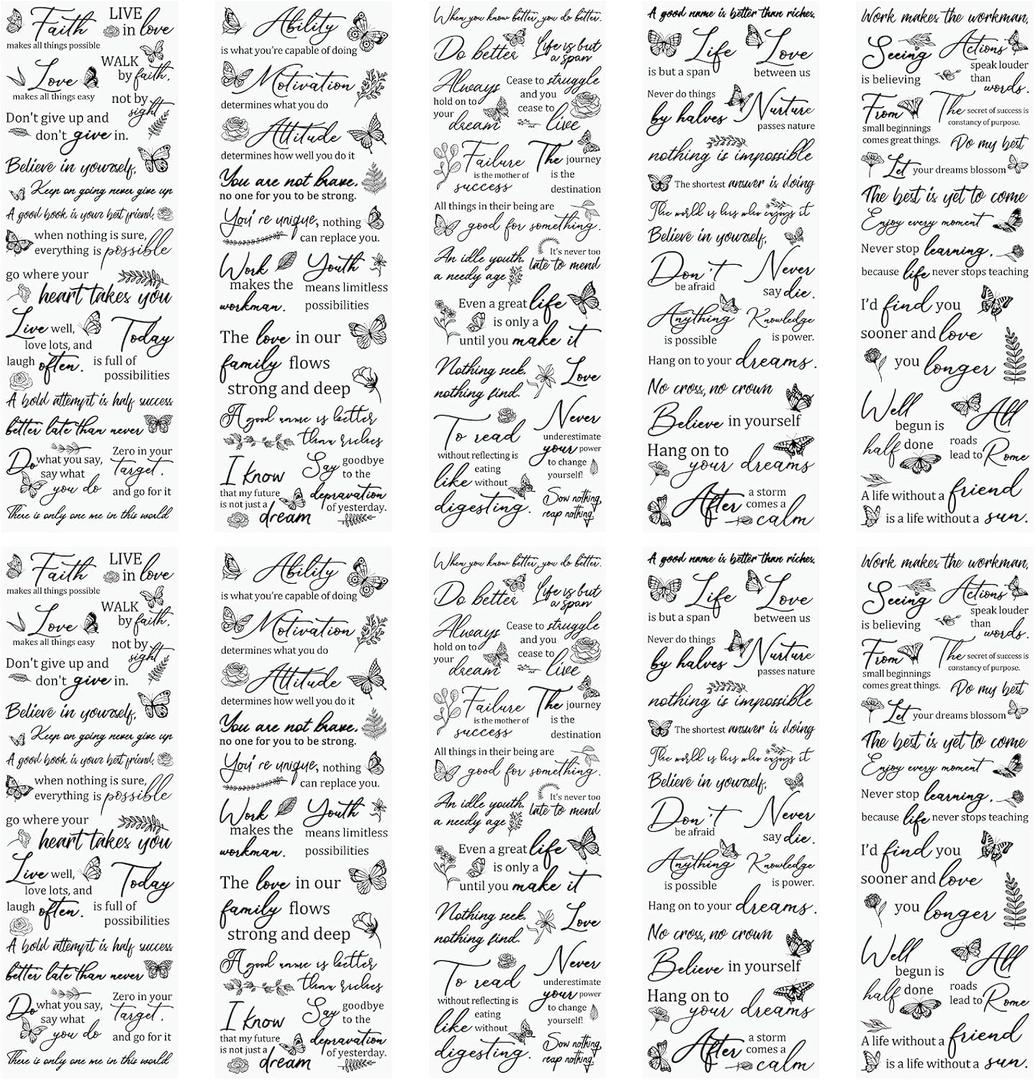 Faith
makes all things possible
LIVE
in love
Love
makes all things easy
WALK
by faith,
not by
sight
Don't give up and
don't give in.
Believe in yourself,
Keep on going never give up
A good book is your best friend,
when nothing is sure,
everything is possible
go where your
heart takes you
Live well,
love lots, and
laugh often.
Today
is full of
possibilities
A bold attempt is half success
better late than never
Do what you say,
say what
you do
Zero in your
target.
and go for it
There is only one me in this world
Ability
is what you're capable of doing
Motivation
determines what you do
Attitude
determines how well you do it
You are not brave.
no one for you to be strong.
You're unique, nothing
can replace you.
Work
makes the
workman.
Youth
means limitless
possibilities
The love in our
family flows
strong and deep
A good name is better
than riches
I know
that my future
is not just a
dream
Say goodbye
to the
depravation
of yesterday.
When you know better, you do better.
Do better
Life is but
a span
Always
hold on to
your
dream
Cease to struggle
and you
cease to
live
Failure
is the mother of
success
The journey
is the
destination
All things in their being are
good for something.
An idle youth,
a needy age
It's never too
late to mend
Even a great life
is only a
until you make it
Nothing seek,
nothing find.
Love
To read
without reflecting is
eating
like without
digesting.
Never
underestimate
your power
to change
yourself!
Sow nothing,
reap nothing
A good name is better than riches.
Life
is but a span
Love
between us
Never do things
by halves
Nurture
passes nature
nothing is impossible
The shortest answer is doing
The world is his who enjoys it
Believe in yourself,
Don't
be afraid
Never
say die.
Anything
is possible
Knowledge
is power.
Hang on to your dreams.
No cross, no crown
Believe in yourself
Hang on to
your dreams
After a storm
comes a
calm
Work makes the workman,
Seeing
is believing
Actions
speak louder
than
words.
From
small beginnings
comes great things.
The secret of success is
constancy of purpose.
Do my best
Let your dreams blossom
The best is yet to come
Enjoy every moment
Never stop learning,
because life never stops teaching
I'd find you
sooner and love
you longer
Well
begun is
half done
All
roads
lead to Rome
A life without a friend
is a life without a sun.
Faith
makes all things possible
LIVE
in love
Love
makes all things easy
WALK
by faith,
not by
sight
Don't give up and
don't give in.
Believe in yourself,
Keep on going never give up
A good book is your best friend,
when nothing is sure,
everything is possible
go where your
heart takes you
Live well,
love lots, and
laugh often.
Today
is full of
possibilities
A bold attempt is half success
better late than never
Do what you say,
say what
you do
Zero in your
target.
and go for it
There is only one me in this world
Ability
is what you're capable of doing
Motivation
determines what you do
Attitude
determines how well you do it
You are not brave.
no one for you to be strong.
You're unique, nothing
can replace you.
Work
makes the
workman.
Youth
means limitless
possibilities
The love in our
family flows
strong and deep
A good name is better
than riches
I know
that my future
is not just a
dream
Say goodbye
to the
depravation
of yesterday.
When you know better, you do better.
Do better
Life is but
a span
Always
hold on to
your
dream
Cease to struggle
and you
cease to
live
Failure
is the mother of
success
The journey
is the
destination
All things in their being are
good for something.
An idle youth,
a needy age
It's never too
late to mend
Even a great life
is only a
until you make it
Nothing seek,
nothing find.
Love
To read
without reflecting is
eating
like without
digesting.
Never
underestimate
your power
to change
yourself!
Sow nothing,
reap nothing
A good name is better than riches.
Life
is but a span
Love
between us
Never do things
by halves
Nurture
passes nature
nothing is impossible
The shortest answer is doing
The world is his who enjoys it
Believe in yourself,
Don't
be afraid
Never
say die.
Anything
is possible
Knowledge
is power.
Hang on to your dreams.
No cross, no crown
Believe in yourself
Hang on to
your dreams
After a storm
comes a
calm
Work makes the workman,
Seeing
is believing
Actions
speak louder
than
words.
From
small beginnings
comes great things.
The secret of success is
constancy of purpose.
Do my best
Let your dreams blossom
The best is yet to come
Enjoy every moment
Never stop learning,
because life never stops teaching
I'd find you
sooner and love
you longer
Well
begun is
half done
All
roads
lead to Rome
A life without a friend
is a life without a sun.